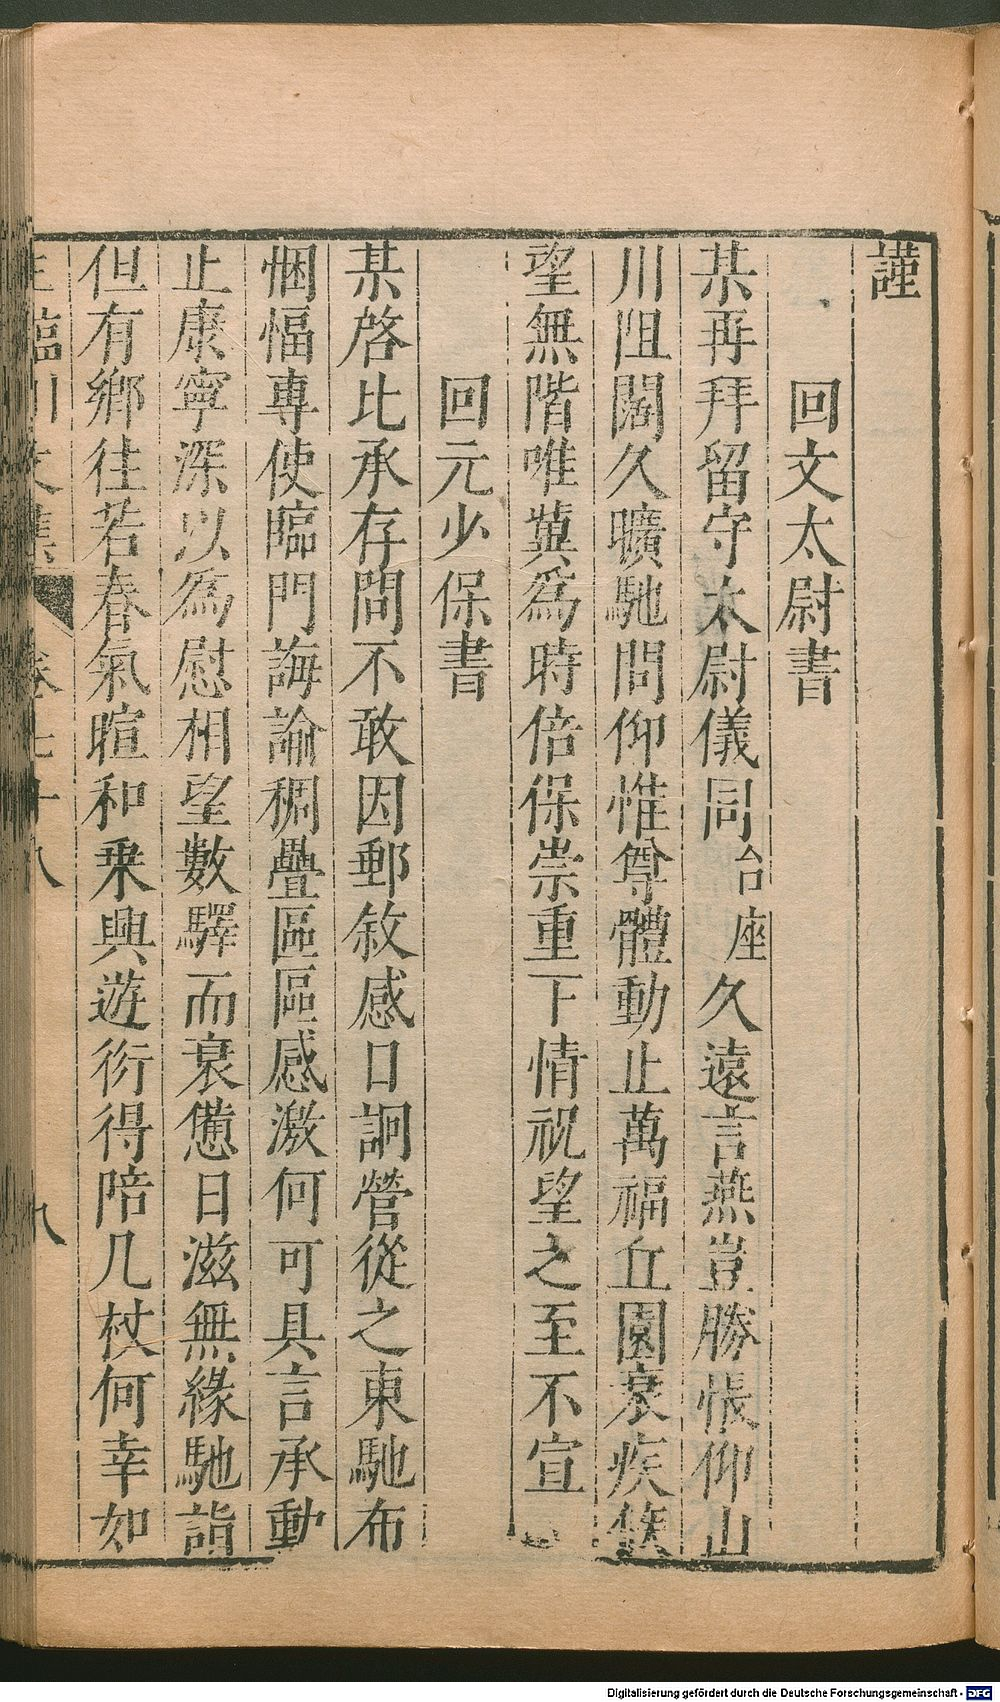 謹
回文太尉書
某再拜留守太尉儀同台座久遠言燕豈勝悵仰山
川阻闊久曠馳問仰惟尊體動止萬福丘園衰疾
望無階唯冀爲時倍保崇重下情祝望之至不宣
回元少保書
某啓比承存問不敢因郵敘感口詗營從之東馳布
悃愊專使臨門誨諭稠疊區區感激何可具言承動
止康寧深以爲慰相望數驛而衰憊日滋無緣馳詣
但有鄉往若春氣暄和乘興遊衍得陪几杖何幸如
臨川文集 卷七十八 九
Digitalisierung gefördert durch die Deutsche Forschungsgemeinschaft - DFG